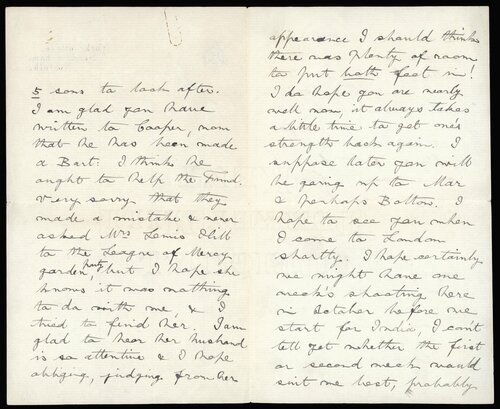 5 sons to look after.
I am glad you have
written to Cooper, now
that he has been made
a Bart: I think he
ought to help the Fund.
Very sorry that they
made a mistake & never
asked Mrs Lewis Hill
to the League of Mercy
garden party, but I hope she
knows it was nothing
to do with me, & I
tried to find her. I am
glad to hear her husband
is so attentive & I hope
obliging, judging from her
appearance I should think
there was plenty of room
to put both feet in!
I do hope you are nearly
well now, it always takes
a little time to get one's
strength back again. I
suppose later you will
be going up to Mar
& perhaps Bolton. I
hope to see you when
I come to London
shortly. I hope certainly
we might have one
week's shooting here
in October before we
start for India, I can't
tell yet whether the first
or second week would
suit me best, probably